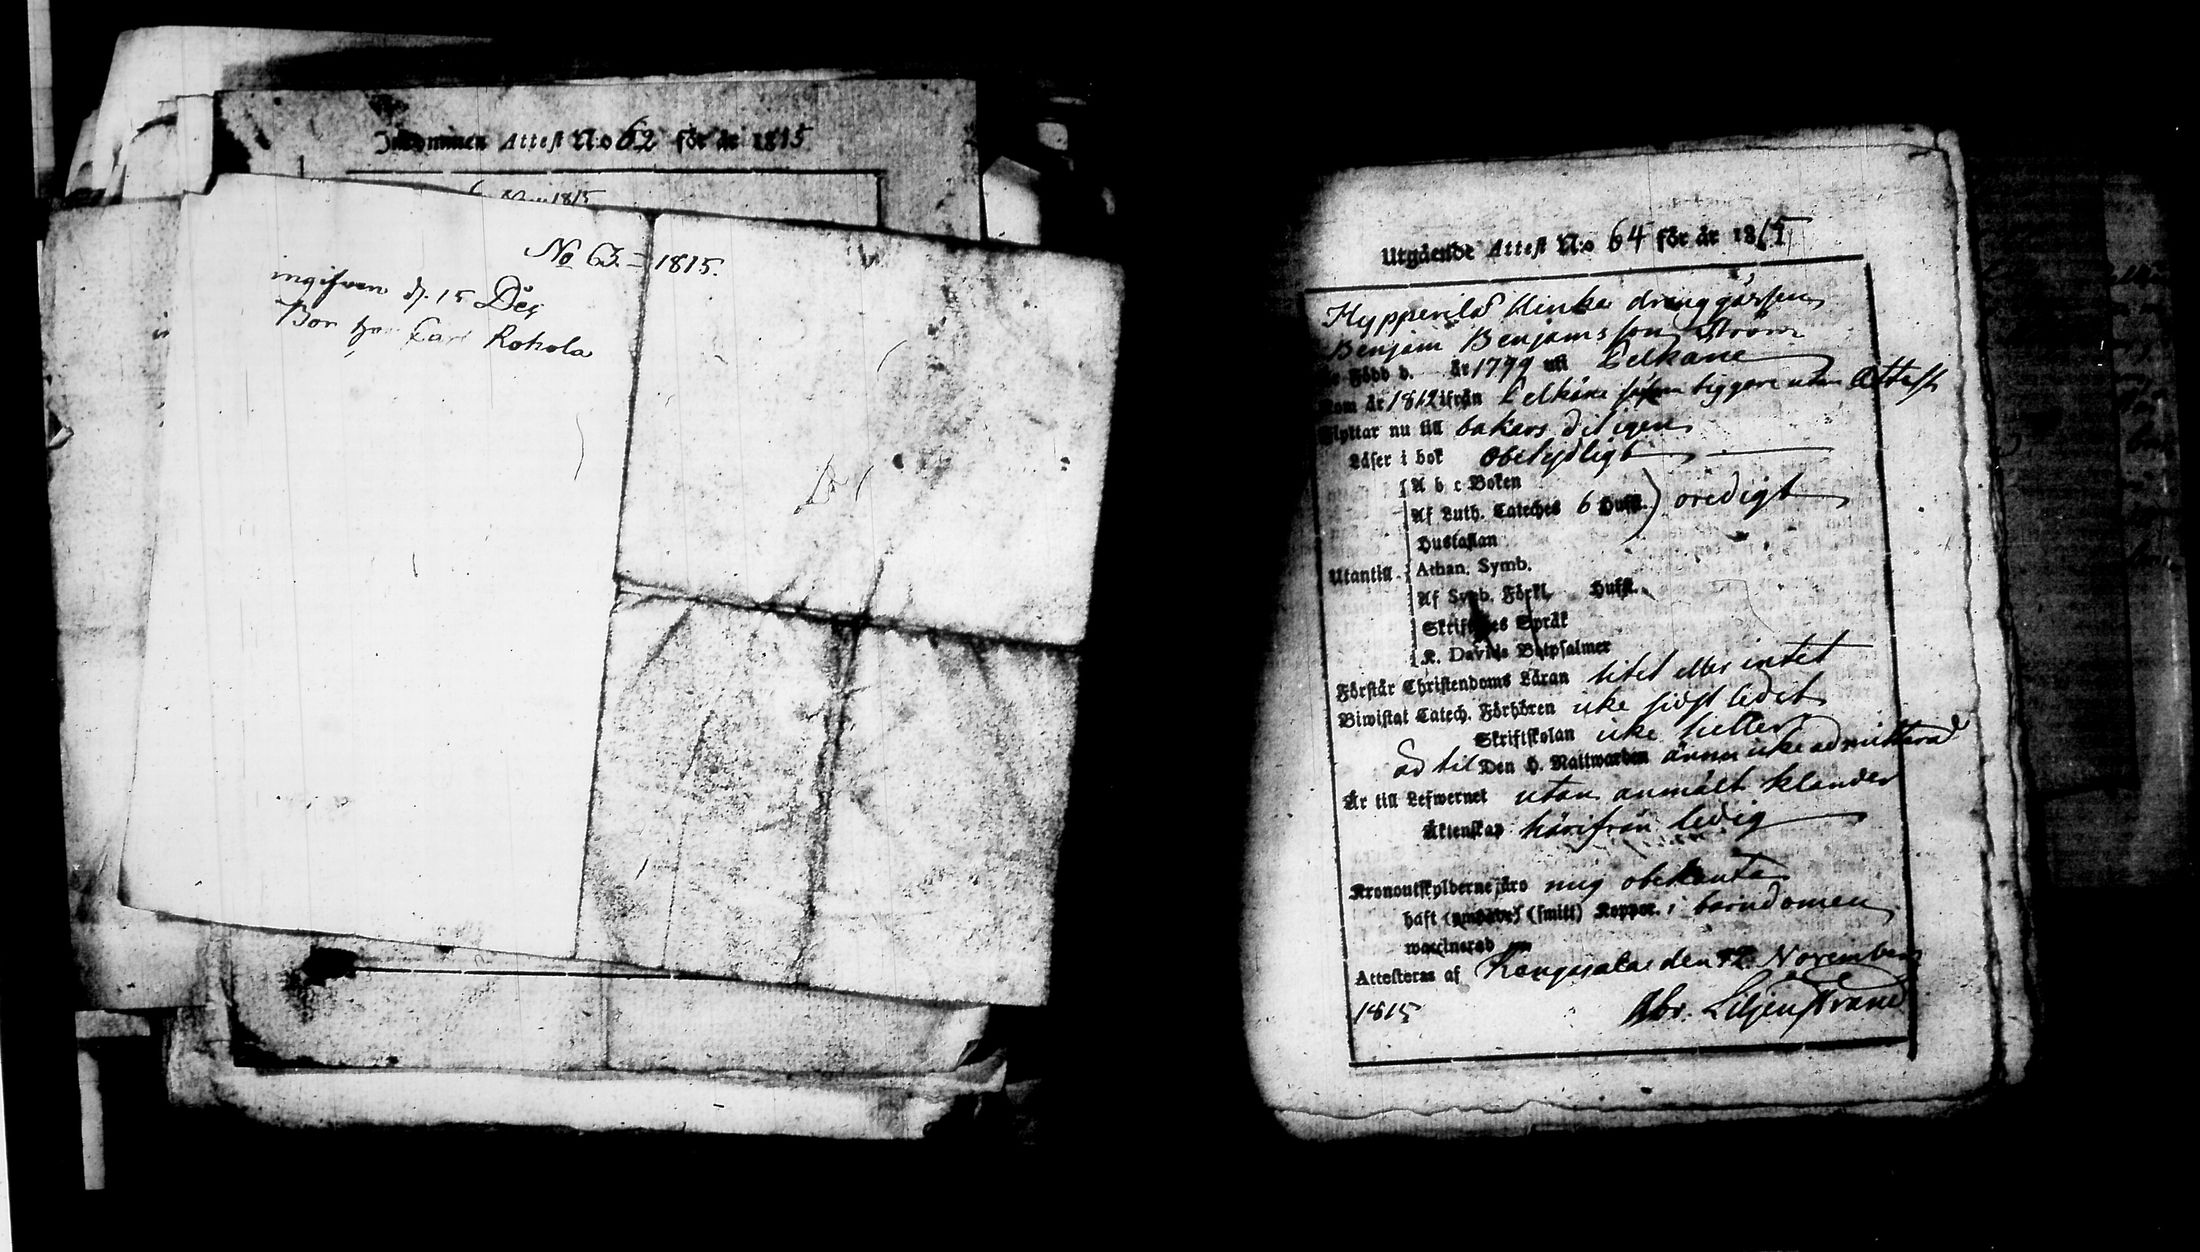 Inkommen Attest N:o 62 för år 1815
1815
No 63. = 1815.
ingifven d. 15 Dec
Bor hos Carl Rokola
Utgående Attest N:o 64 för år 1815
Hypperilä Hinka dränggåssen
Benjam Benjamsson Ström
Född d. år 1799 uti Pelkäne
Kom år 1812 ifrån Pelkäne såsom tiggare utan Attest
Flyttar nu till bakars dit igen
Läser i bok obetydligt
A b c Boken
Af Luth. Cateches 6 Hufst. ) oredigt
Hustaflan
Utantill Athan. Symb.
Af Sveb. Förkl. Hufst.
Skriftenes Språk
K. Davids Botpsalmer
Förstår Christendoms Läran litet eller intet
Biwistat Catech. Förhören icke sidst ledit
Skriftskolan icke heller
ad til Den H. Nattwarden ännu icke admitterad
Är till Lefwernet utan anmält klander
Äktenskap härifrån ledig
Kronoutskylderne äro mig obekanta
haft (smitt) Koppor i barndomen
waccinerad
Attesteras af Kangasala den 12 November
1815 Abr. Liljenstrand